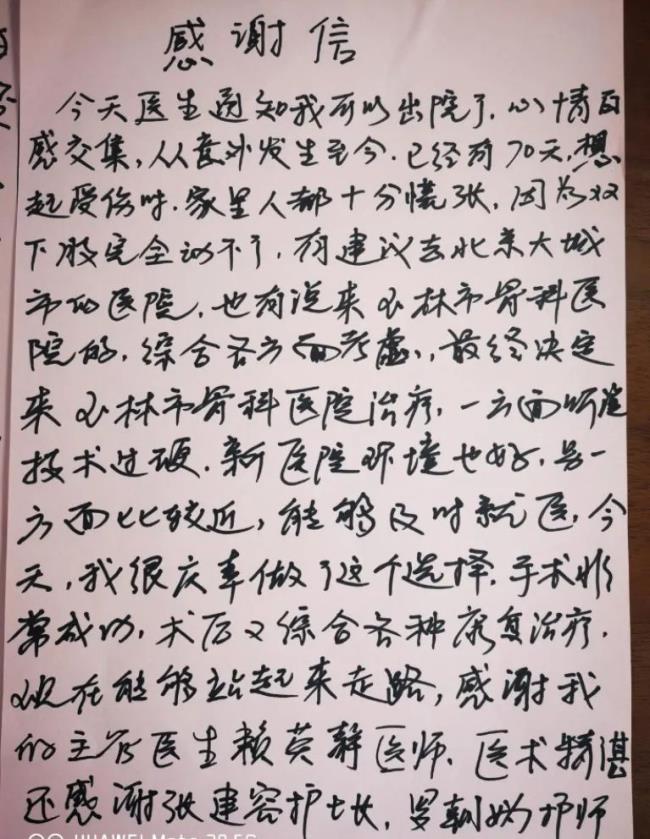 感谢信
今天医生通知我可以出院了,心情百
感交集,从意外发生至今.已经有70天,想
起受伤时.家里人都十分慌张,因为双
下肢完全动不了,有建议去北京大城
市的医院,也有说来玉林市骨科医
院的,综合各方面考虑,最终决定
来玉林市骨科医院治疗,一方面听说
技术过硬.新医院环境也好,另一
方面比较近,能够及时就医,今
天,我很庆幸做了这个选择.手术非
常成功,术后又综合各种康复治疗.
现在能够站起来走路,感谢我
的主管医生赖英静医师.医术精湛
还感谢张建容护士长,罗 护师
HUAWEI Mate 20